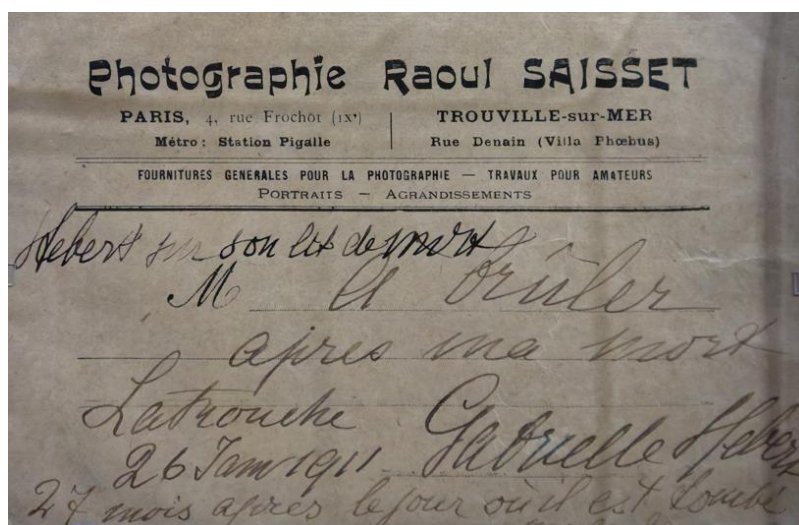 Photographie Raoul SAISSET
PARIS, 4, rue Frochot (IXe) TROUVILLE-sur-MER
Métro : Station Pigalle Rue Denain (Villa Phœbus)
FOURNITURES GENERALES POUR LA PHOTOGRAPHIE — TRAVAUX POUR AMATEURS
PORTRAITS — AGRANDISSEMENTS
Hebert sur son lit de mort
M a brûler
apres ma mort
LaTronche Gabrielle Hebert
26 Janv 1911
27 mois apres le jour où il est tombé